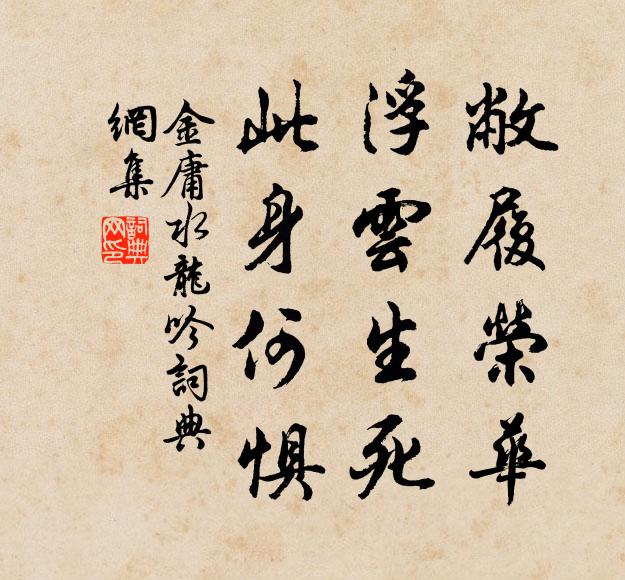 敝履榮華
浮雲生死
此身何懼
金庸水龍吟詞典
網集
詞典
网印